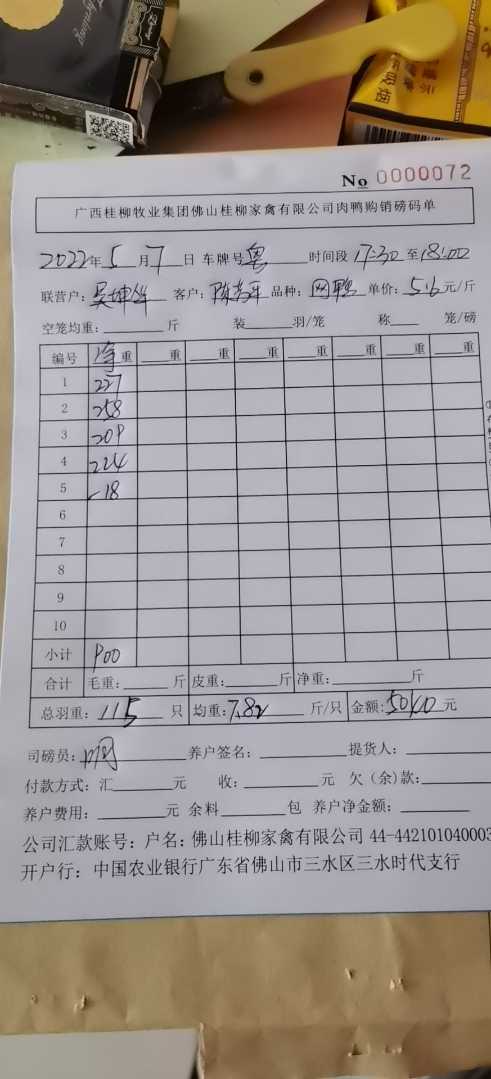 No 0000072
广西桂柳牧业集团佛山桂柳家禽有限公司肉鸭购销磅码单
2022年 5 月 7 日 车牌号 粤 时间段 17:30 至 18:00
联营户: 吴坤 客户: 陈 品种: 网鸭 单价: 5.6 元/斤
空笼均重: 斤 装 羽/笼 称 笼/磅
编号 净重 重 重 重 重 重 重 重
1 227
2 258
3 209
4 224
5 -18
6
7
8
9
10
小计 900
合计 毛重: 斤 皮重: 斤 净重: 斤
总羽重: 115 只 均重: 7.82 斤/只 金额: 5040 元
司磅员: 养户签名: 提货人:
付款方式: 汇 元 收: 元 欠(余)款:
养户费用: 元 余料 包 养户净金额:
公司汇款账号: 户名: 佛山桂柳家禽有限公司 44-442101040003
开户行: 中国农业银行广东省佛山市三水区三水时代支行